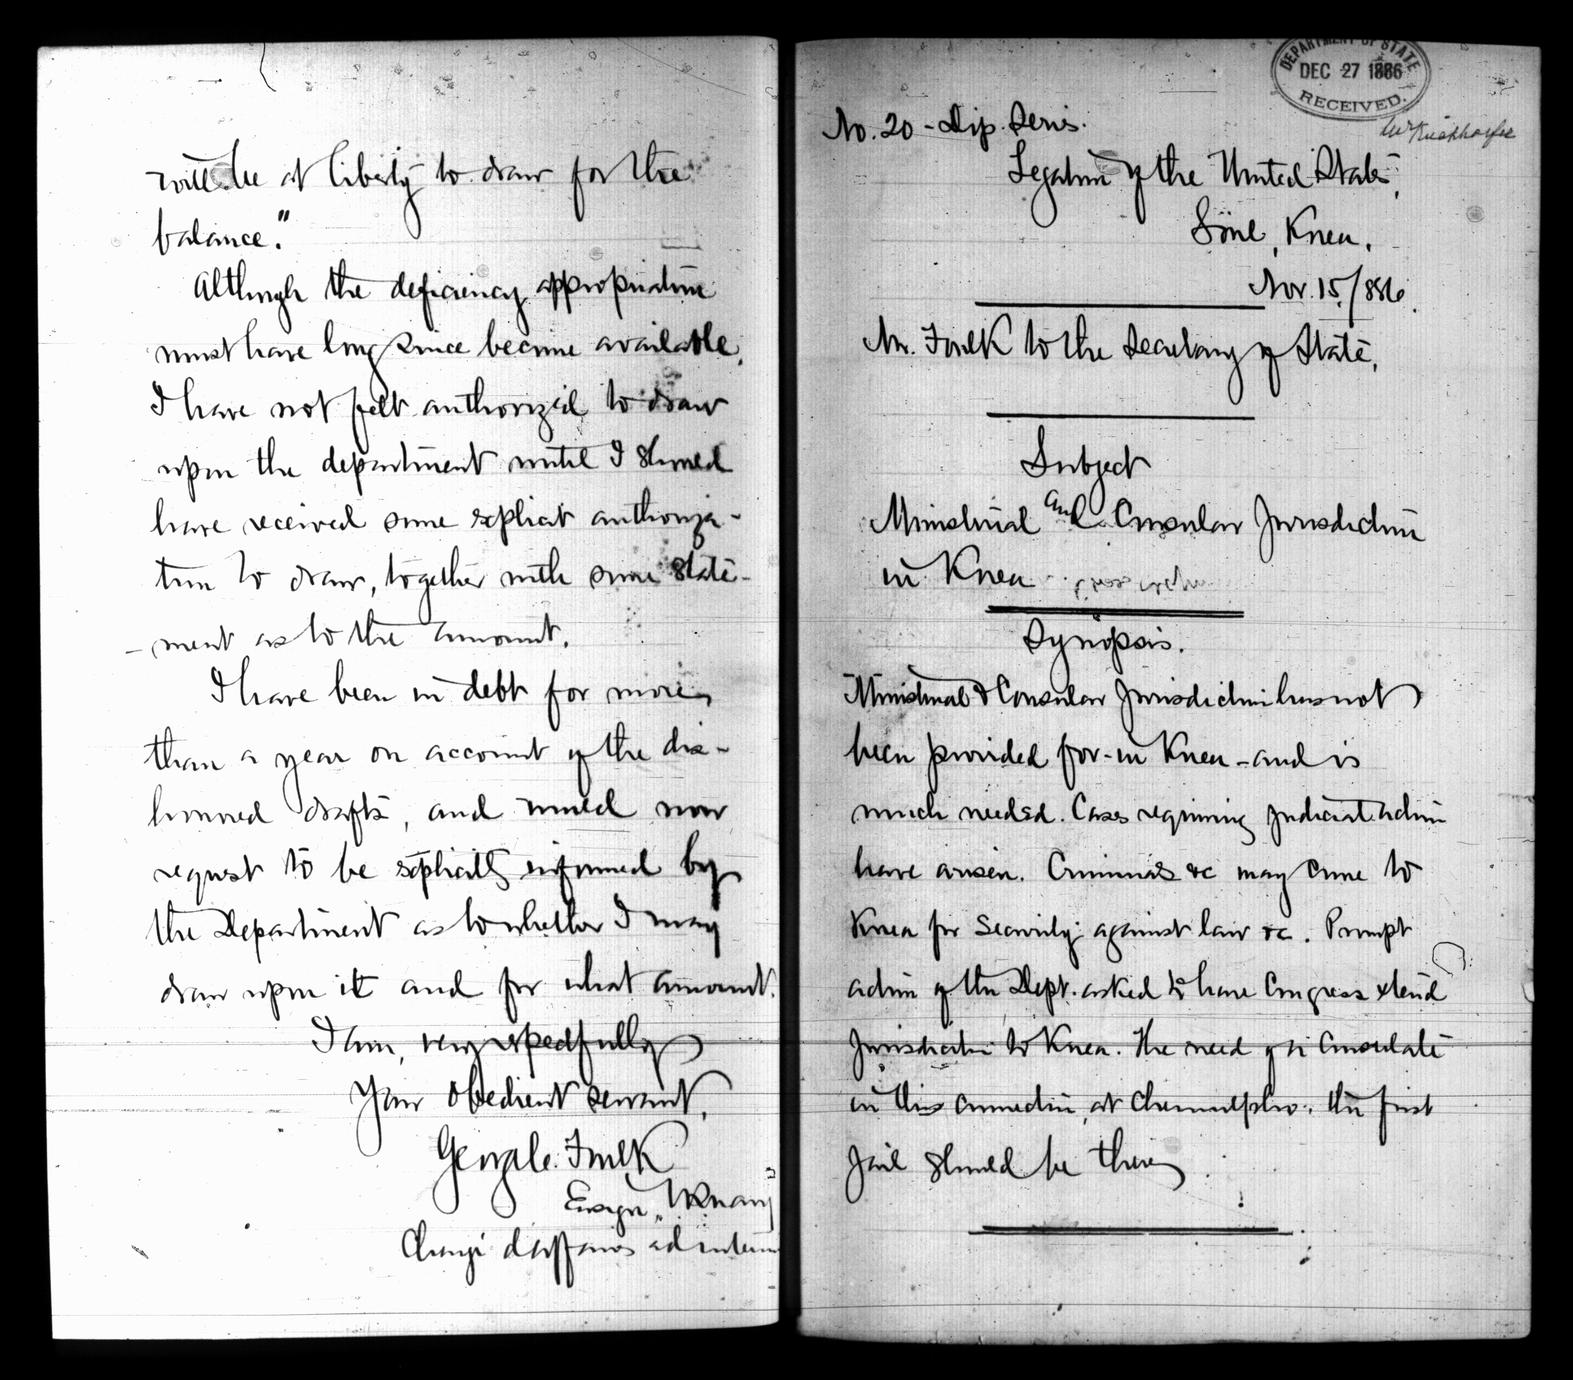 will be at liberty to draw for the
balance."
Although the deficiency appropriation
must have long since become available,
I have not felt authorized to draw
upon the department until I should
have received some explicit authoriza-
tion to draw, together with some state-
-ment as to the amount.
I have been in debt for more
than a year on account of the dis-
honored drafts, and would now
request to be explicitly informed by
the Department as to whether I may
draw upon it and for what amount.
I am, very respectfully
Your obedient servant,
George C. Foulk
Ensign, U.S. Navy
Chargé d'affaires ad interim
DEPARTMENT OF STATE
DEC 27 1886
RECEIVED.
No. 20 - Dip. Series.
Legation of the United States,
Söul, Korea,
Nov. 15/1886.
Mr. Foulk to the Secretary of State,
Subject
Ministerial and Consular Jurisdiction
in Korea
Synopsis.
Ministerial & Consular Jurisdiction has not
been provided for in Korea - and is
much needed. Cases requiring Judicial action
have arisen. Criminals &c may come to
Korea for Security against law &c. Prompt
action of the Dept. asked to have Congress extend
Jurisdiction to Korea. The need of a Consulate
in this connection, at Chemulpho: the first
Jail should be there